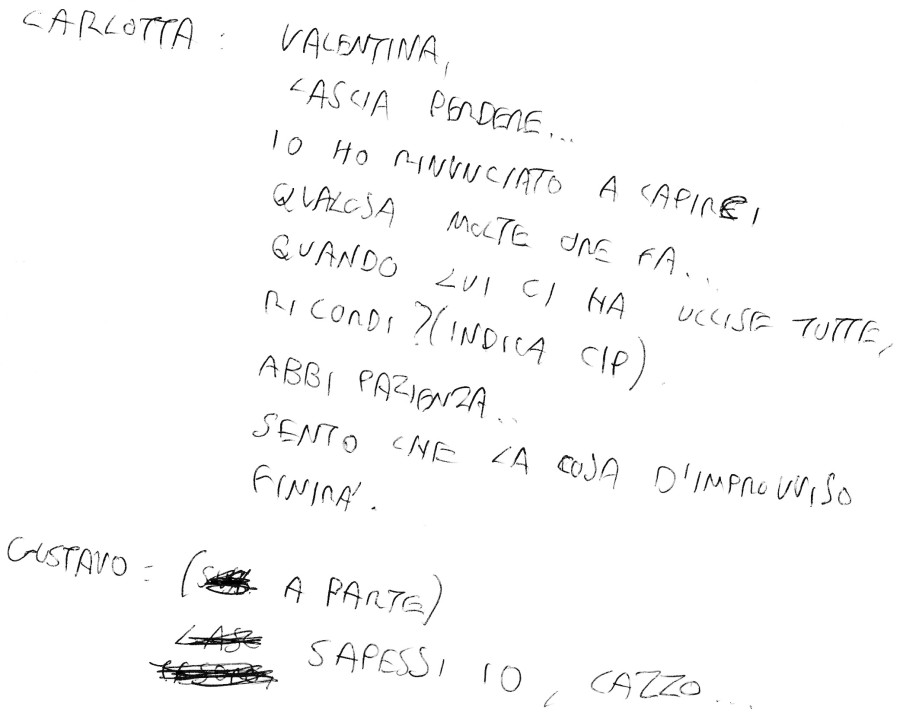 CARLOTTA : VALENTINA,
LASCIA PERDERE...
IO HO RINUNCIATO A CAPIRCI
QUALCOSA MOLTE ORE FA...
QUANDO LUI CI HA UCCISE TUTTE,
RICORDI? (INDICA CIP).
ABBI PAZIENZA...
SENTO CHE LA COSA D'IMPROVVISO
FINIRA'.
GUSTAVO : ( A PARTE)
SAPESSI IO, CAZZO...